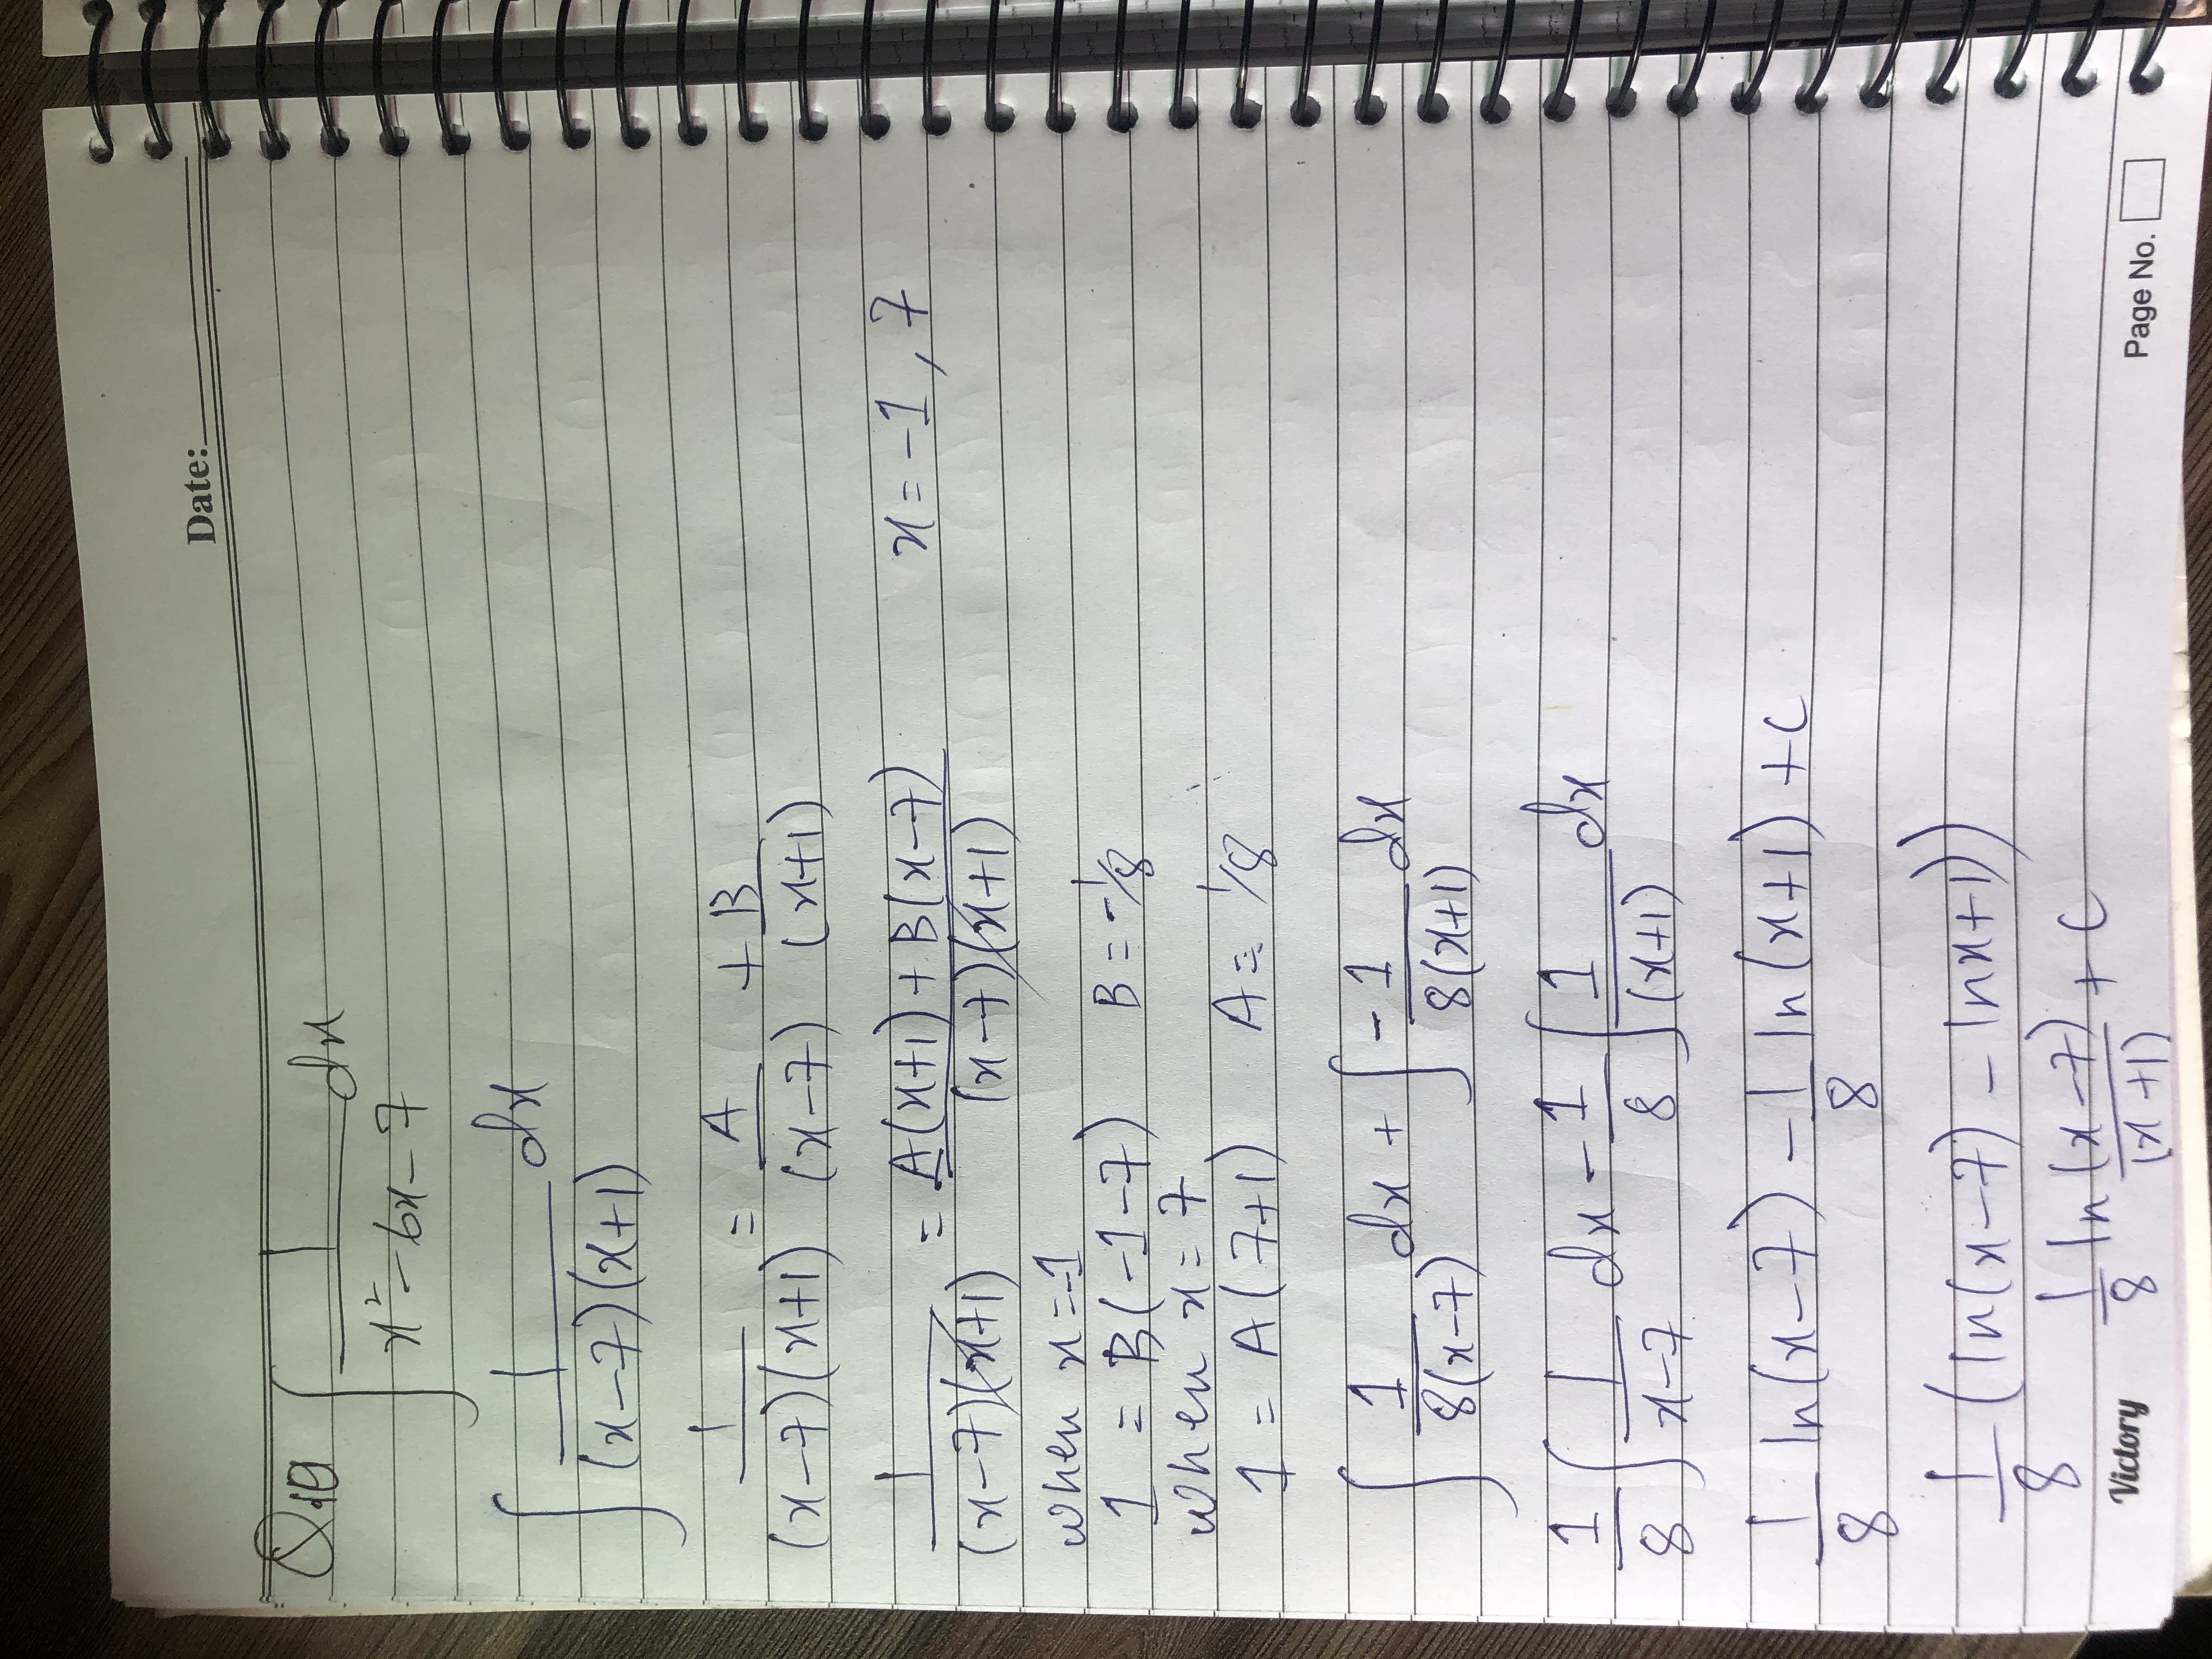 Date:
Q.10 ∫ 1/(x² - 6x - 7) dx
∫ 1/((x-7)(x+1)) dx
1/((x-7)(x+1)) = A/(x-7) + B/(x+1)
1/((x-7)(x+1)) = (A(x+1) + B(x-7))/((x-7)(x+1)) x = -1, 7
when x = -1
1 = B(-1-7) B = -1/8
when x = 7
1 = A(7+1) A = 1/8
∫ 1/(8(x-7)) dx + ∫ -1/(8(x+1)) dx
1/8 ∫ 1/(x-7) dx - 1/8 ∫ 1/(x+1) dx
1/8 ln(x-7) - 1/8 ln(x+1) + C
1/8 (ln(x-7) - lnx+1))
1/8 ln (x-7)/(x+1) + C
Victory
Page No.